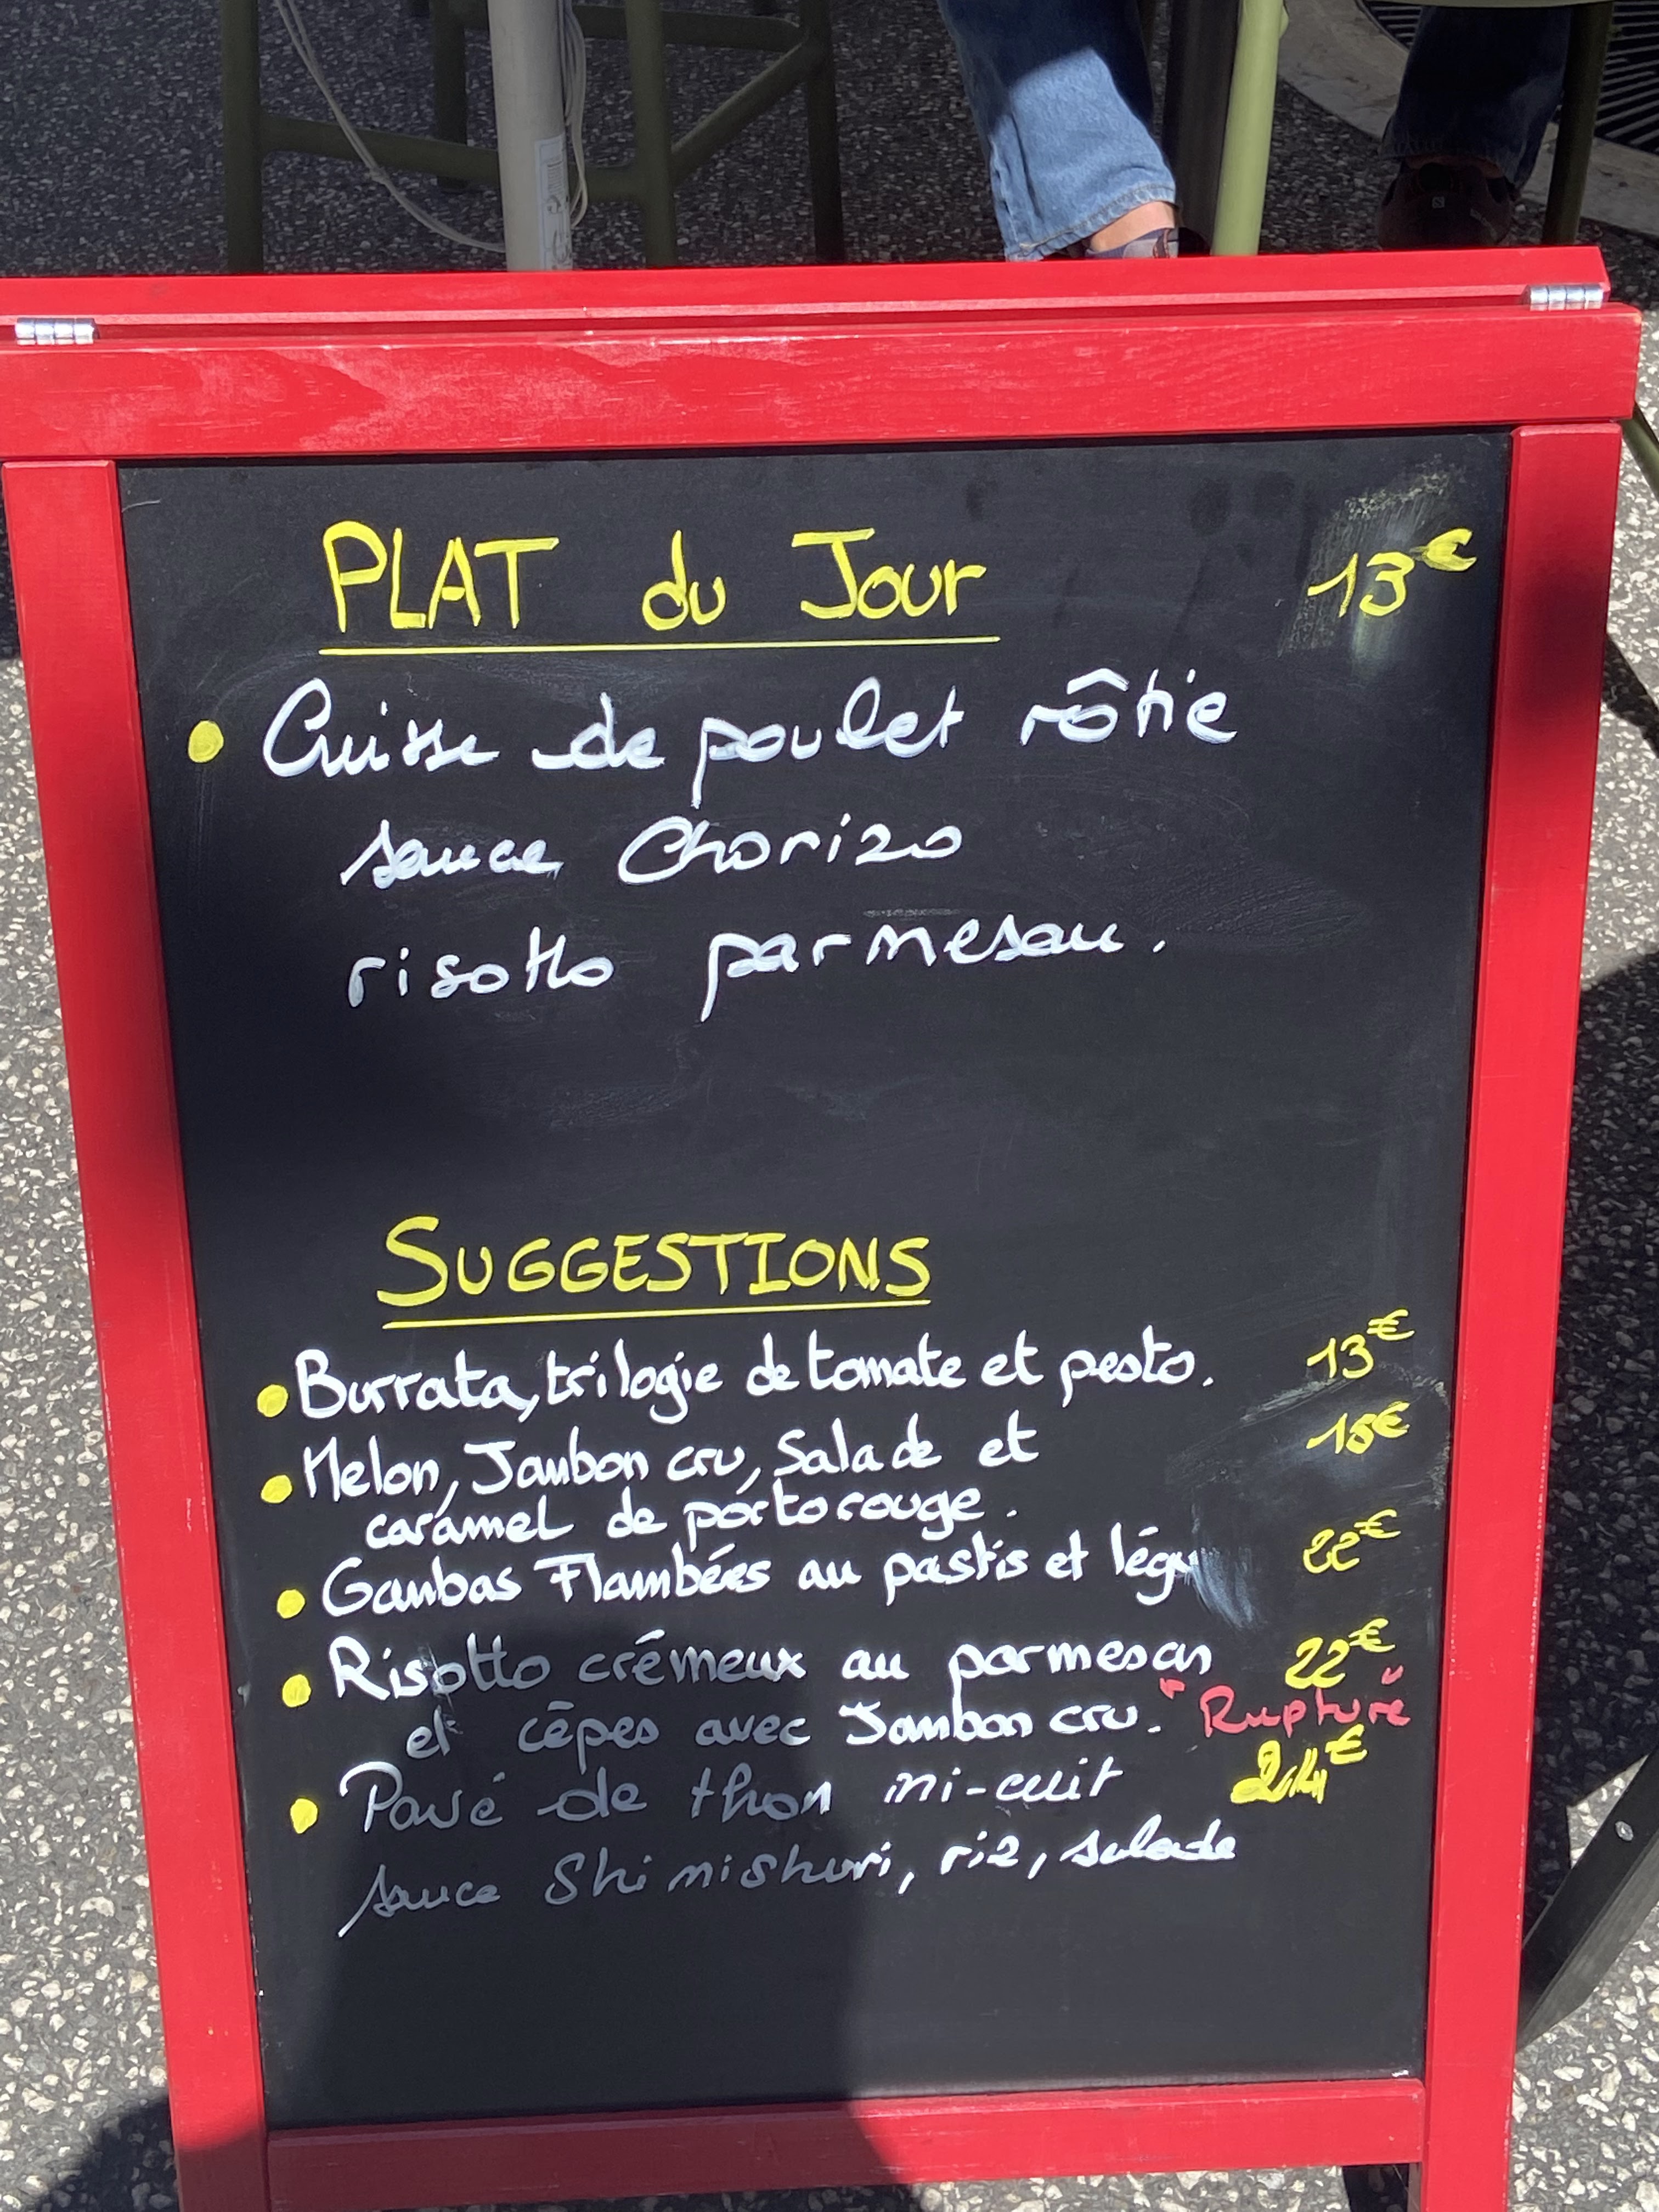 PLAT du Jour 13€
Cuisse de poulet rôtie
sauce Chorizo
risotto parmesan.
SUGGESTIONS
Burrata, trilogie de tomate et pesto. 13€
Melon, Jambon cru, Salade et 18€
caramel de porto rouge.
Gambas Flambées au pastis et légu 22€
Risotto crémeux au parmesan 22€
et cêpes avec Jambon cru. "Rupture"
Pavé de thon mi-cuit 24€
sauce Shimishuri, riz, salade